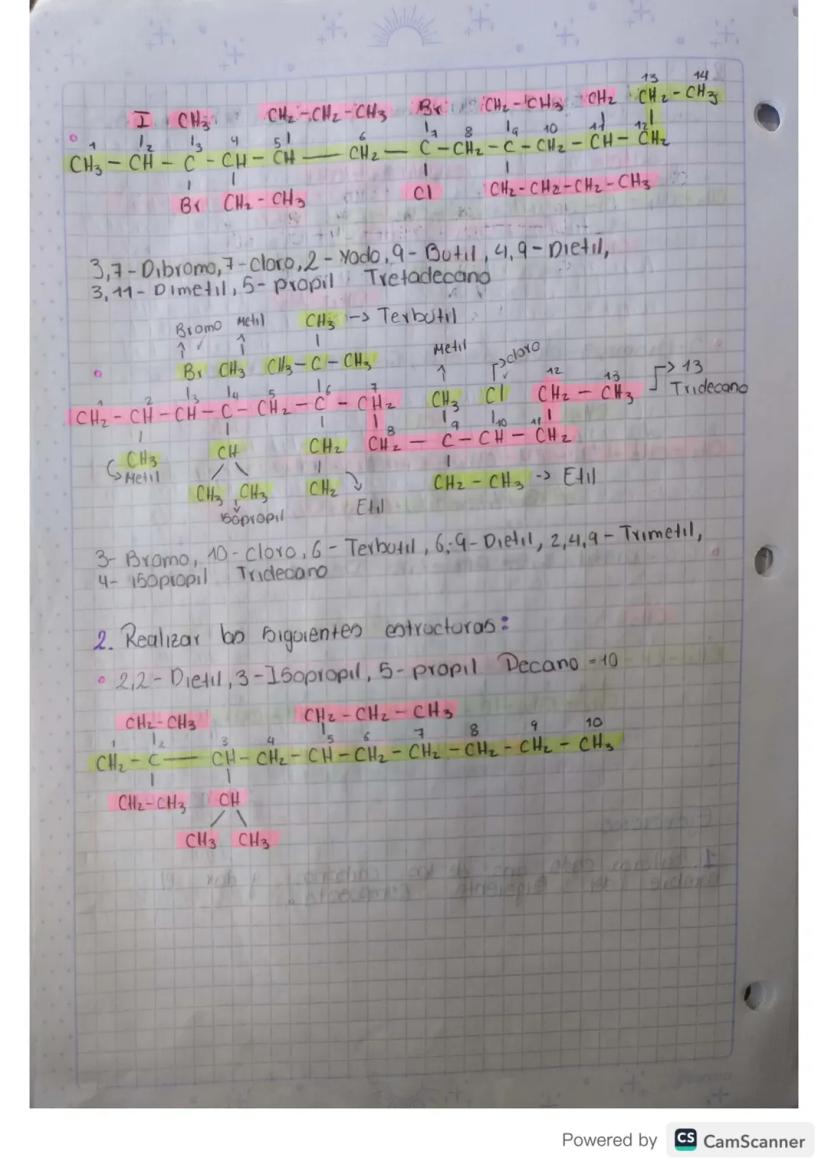 13 14
I CH₃ CH₂-CH₂-CH₃ Br CH₂-CH₃ CH₂ CH₂-CH₃
1 2 3 4 5 6 7 8 9 10 11 12
CH₃ - CH - C - CH - CH - CH₂ - C - CH₂ - C - CH₂ - CH - CH₂
Br CH₂-CH₃ Cl CH₂-CH₂-CH₂-CH₃
3,7-Dibromo, 7-cloro, 2-Yodo, 9-Butil, 4,9-Dietil,
3,11-Dimetil, 5-propil Tretadecano
Bromo Metil CH₃ -> Terbutil
Metil cloro
Br CH₃ CH₃-C-CH₃
12 13
CH₃ Cl CH₂ - CH₃ -> 13
Tridecano
1 2 3 4 5 6 7
CH₂ - CH - CH - C - CH₂ - C - CH₂
8 9 10 11
CH₂ - C - CH - CH₂
CH₃ CH CH₂
Metil
CH₃ CH₃ CH₂ CH₂ - CH₃ -> Etil
Isopropil Etil
3- Bromo, 10-cloro, 6-Terbutil, 6,9-Dietil, 2,4,9-Trimetil,
4- isopropil Tridecano
2. Realizar los siguientes estructuras:
2,2-Dietil, 3-Isopropil, 5-propil Decano = 10
CH₂-CH₃ CH₂-CH₂-CH₃
1 2 3 4 5 6 7 8 9 10
CH₂ - C - CH - CH₂ - CH - CH₂ - CH₂ - CH₂ - CH₂ - CH₃
CH₂-CH₃ CH
CH₃ CH₃
Powered by CS CamScanner